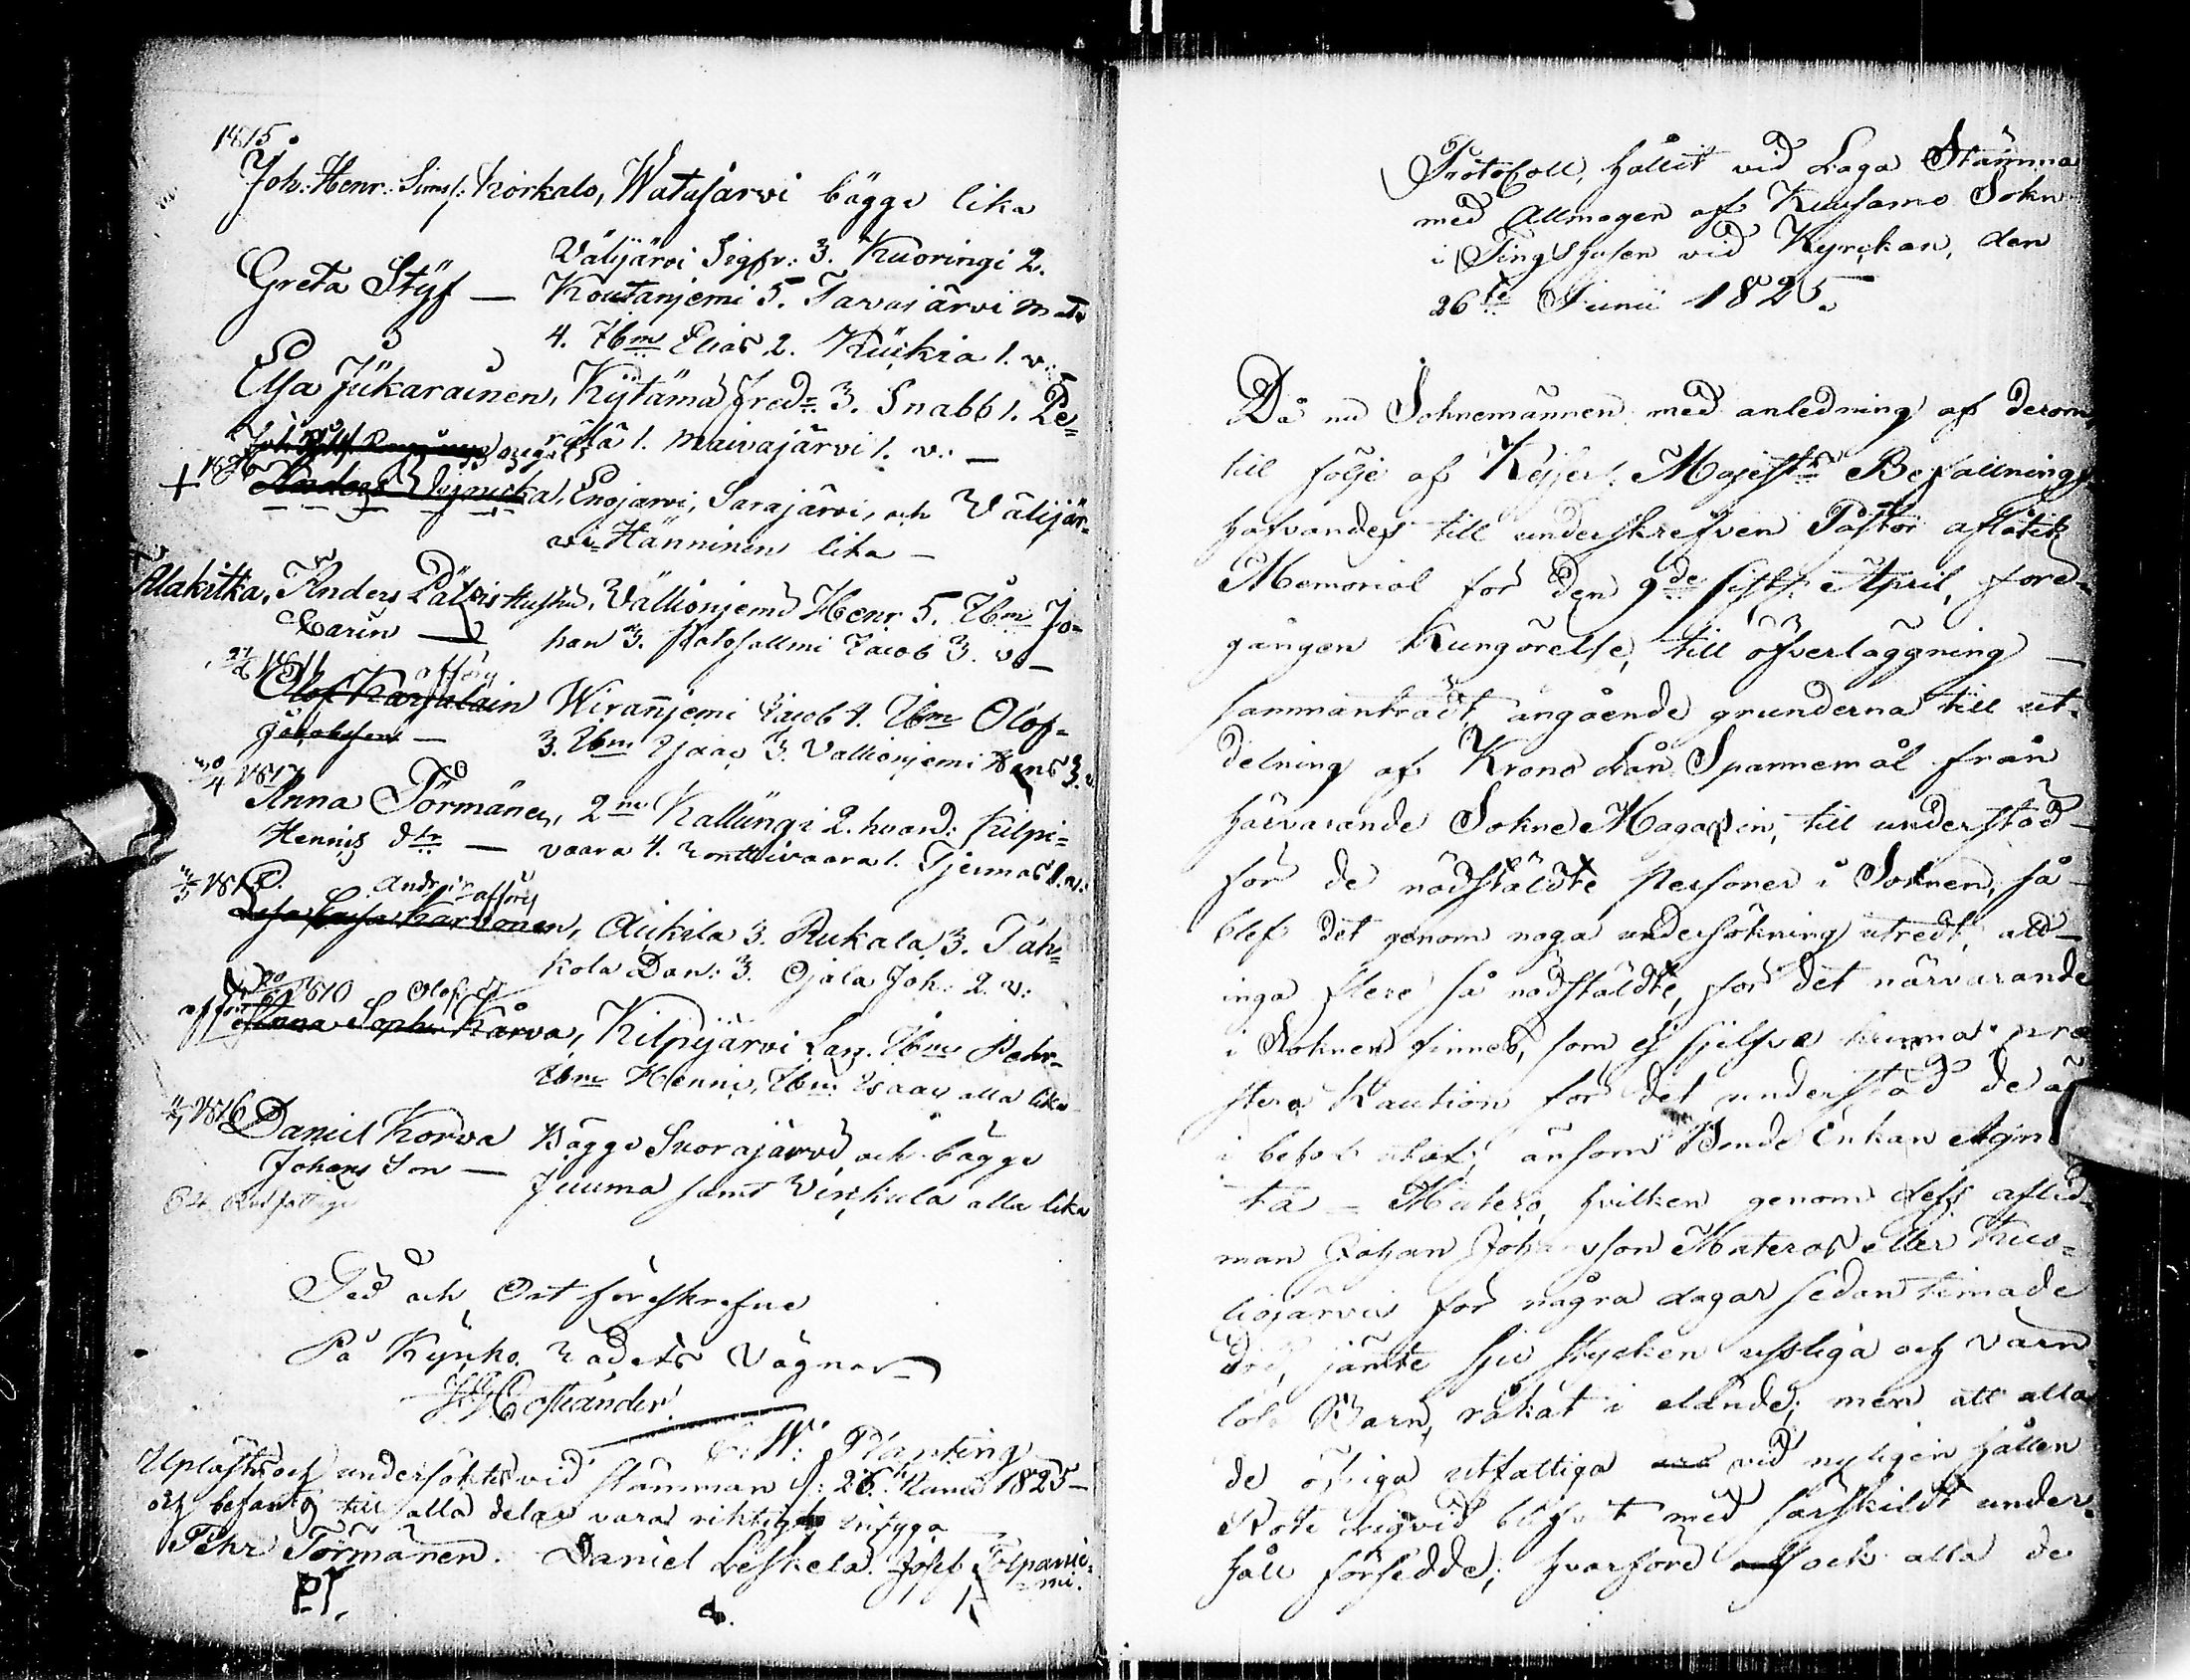 1815.
Joh: Henr: Sims: Korkalo, Watajärvi bägge lika
Välijärvi Sigfr: 3. Kuoringi 2.
Greta Styf — Koutanjemi 5. Tavajärvi Mats
4. Ibm Elias 2. Kückia 1. v:
Elsa Jükarainen, Kijtämä Fred: 3. Snabb 1. Pe=
rälä 1. Maivajärvi 1. v: —
+ Enojärvi, Sarajärvi, och Välijär-
vi Hänninen lika —
Alakitka, Anders Vällionjemi Henr 5. Ibm Jo=
Carin — han 3. Jacob 3. v —
afförg
Olof Karjalain Wiranjemi Jacob 4. Ibm Olof
Jakobsson — 3. Ibm Isaac 3. Vallionjemi Hans 3. v.
30/4 1817
Anna Törmänen, 2ne Kallungi 2. hvard: Kilpi=
Hennis dtr — vaara 4. vaara 1. Tjermas 1. v:
Anders afförg
Kaisa Karvonen, Aikila 3. Rukala 3. Täh=
kola Dan: 3. Ojala Joh: 2. v:
1810 Olofs dr
Anna Soph: Kårva, Kilpijärvi Lars. Ibm Pehr
Ibm Henric, Ibm Isaac alla lika
1816 Daniel Korva Bägge Suorajärvi, och bägge
Johans Son — Juuma samt Virkula alla lika
Tid och Ort föreskrefne
På Kyrko Rådets Vägnar
Costiander
W: Planting
Uplästes och undersöktes vid Stämman d: 26 Junii 1825 —
och befants till alla delar vara riktigt intyga
Pehr Törmänen. Daniel Leskelä. Josep Tolpanie-
mi.
PT.
Protocoll, hållit vid Laga Stämma
med Allmogen af Kuusamo Sokn
i Tingshusen vid Kyrckan, den
26te Junii 1825.
Då nu Soknemännen med anledning af derom,
till följe af Kejserl. Majestts Befallnings
hafvandes till underskrefven Pastor aflåtit
Memorial för den 9de sistl. April, före-
gången Kungörelse, till öfverläggning —
sammanträdt, angående grunderna till ut-
delning af Krono Lån Spannemål från
härvarande Sokne Magasin, till understöd
för de nödstäldte Personer i Soknen, så
blef det genom noga undersökning utredt, att
inga flere så nödstäldte, för det närvarande
i Soknen finnes, som ej sjelfva kunna præ
stera Kaution för det understöd de ä
i behof utaf, änsom Bonde Enkan Agne
ta — Matero, hvilken genom dess aflid-
man Johan Johansson Materos eller Kuo=
liojärvis för några dagar sedan timade
död, jämte sju stycken usliga och värn
lösa Barn, råkat i elände; men att alla
de öfriga utfattiga vid nyligen hållen
Rote blifvit med särskildt under-
håll försedde; hvarföre ock alla de